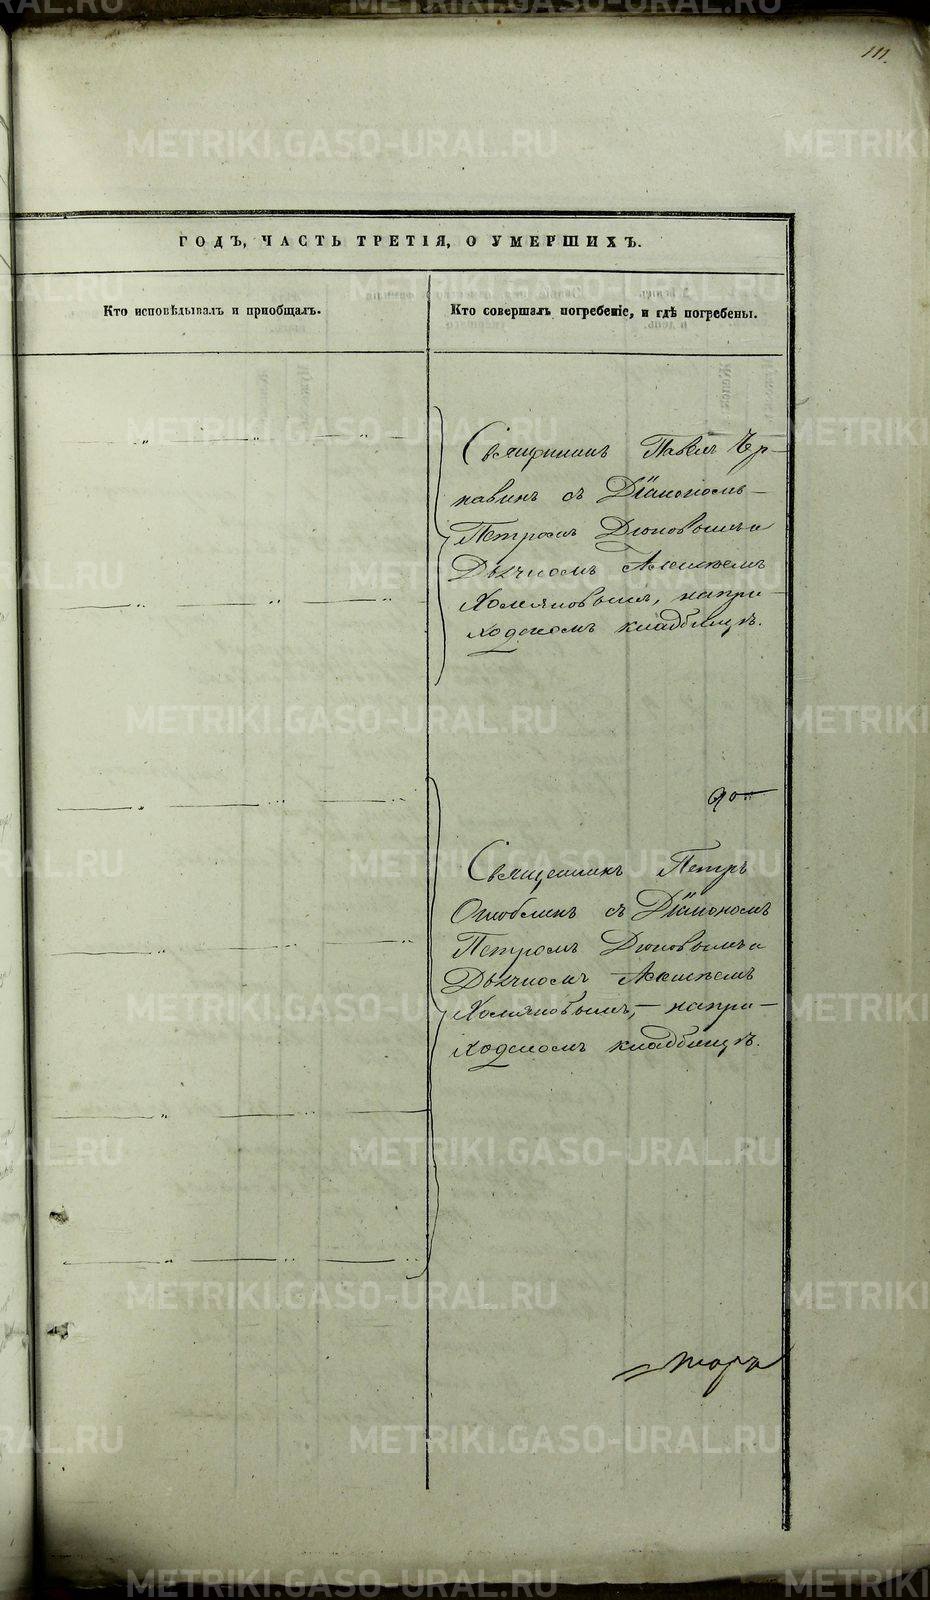 111.
ГОДЪ, ЧАСТЬ ТРЕТІЯ, О УМЕРШИХЪ.
Кто исповѣдывалъ и пріобщалъ.
Кто совершалъ погребеніе, и гдѣ погребены.
Священникъ Павелъ Чер-
навинъ съ Діакономъ
Петромъ и
Дьячкомъ
Холмяновымъ, на при-
ходскомъ кладбищѣ.
Священникъ Петръ
Оглоблинъ съ Діакономъ
Петромъ и
Дьячкомъ
Холмяновымъ, — на при-
ходскомъ кладбищѣ.
METRIKI.GASO-URAL.RU